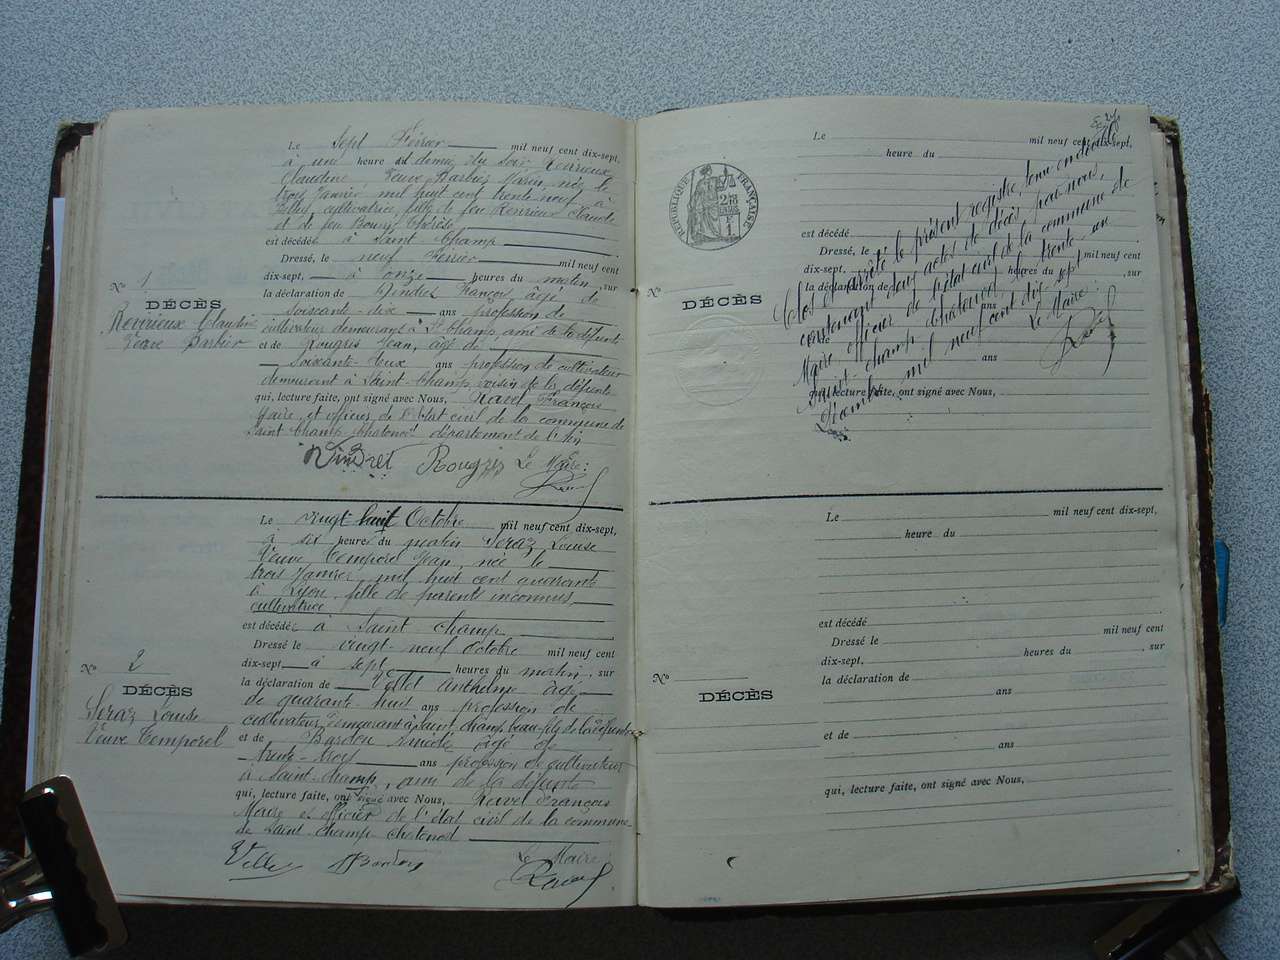 Le sept Février mil neuf cent dix-sept,
à une heure et demie du soir Revirieux
Claudine, Veuve Barbier Marin, née le
trois Janvier mil huit cent trente neuf à
cultivatrice, fille de feu Revirieux Claude
et de feu Bourg Thérèse
est décédée à Saint Champ
Dressé, le neuf Février mil neuf cent
dix-sept, à onze heures du matin, sur
la déclaration de Vindret François, âgé de
Soixante-dix ans profession de
cultivateur demeurant à St Champ, ami de la défunte
et de Rougris Jean, âgé de
Soixante-deux ans profession de cultivateur
demeurant à Saint-Champ, voisin de la défunte
qui, lecture faite, ont signé avec Nous, Ravel François
Maire et officier de l'état civil de la commune de
Saint Champ Chatonod département de l'Ain
Vindret Rougris Le Maire:
Ravel
No 1
DÉCÈS
Revirieux Claudine
Veuve Barbier
Le vingt huit Octobre mil neuf cent dix-sept,
à six heures du matin Seraz Louise
Veuve Temporel Jean, née le
trois Janvier mil huit cent quarante
à Lyon, fille de parents inconnus
cultivatrice
est décédée à Saint Champ
Dressé le vingt-neuf Octobre mil neuf cent
dix-sept à sept heures du matin, sur
la déclaration de Vellet Anthelme âgé
de quarante-huit ans profession de
cultivateur demeurant à Saint Champ beau-fils de la défunte
et de Bardou Amédé âgé de
trente-trois ans profession de cultivateur
à Saint-Champ, ami de la défunte
qui, lecture faite, ont signé avec Nous, Ravel François
Maire et officier de l'état civil de la commune
de Saint-Champ Chatonod
Bardou Le Maire
Ravel
No 2
DÉCÈS
Seraz Louise
Veuve Temporel
Le mil neuf cent dix-sept,
heure du
RÉPUBLIQUE FRANÇAISE
est décédé
Dressé, le mil neuf cent
dix-sept, heures du , sur
la déclaration de
ans
No
DÉCÈS
et de
ans
qui, lecture faite, ont signé avec Nous,
Clos et arrêté le présent registre, tenu en double
contenant deux actes de décès par nous,
Maire officier de l'état civil de la commune de
Saint-Champ Chatonod, le trente-un
Décembre mil neuf cent dix sept
Le Maire:
Ravel
Le mil neuf cent dix-sept,
heure du
est décédé
Dressé le mil neuf cent
dix-sept, heures du , sur
la déclaration de
ans
No
DÉCÈS
et de
ans
qui, lecture faite, ont signé avec Nous,